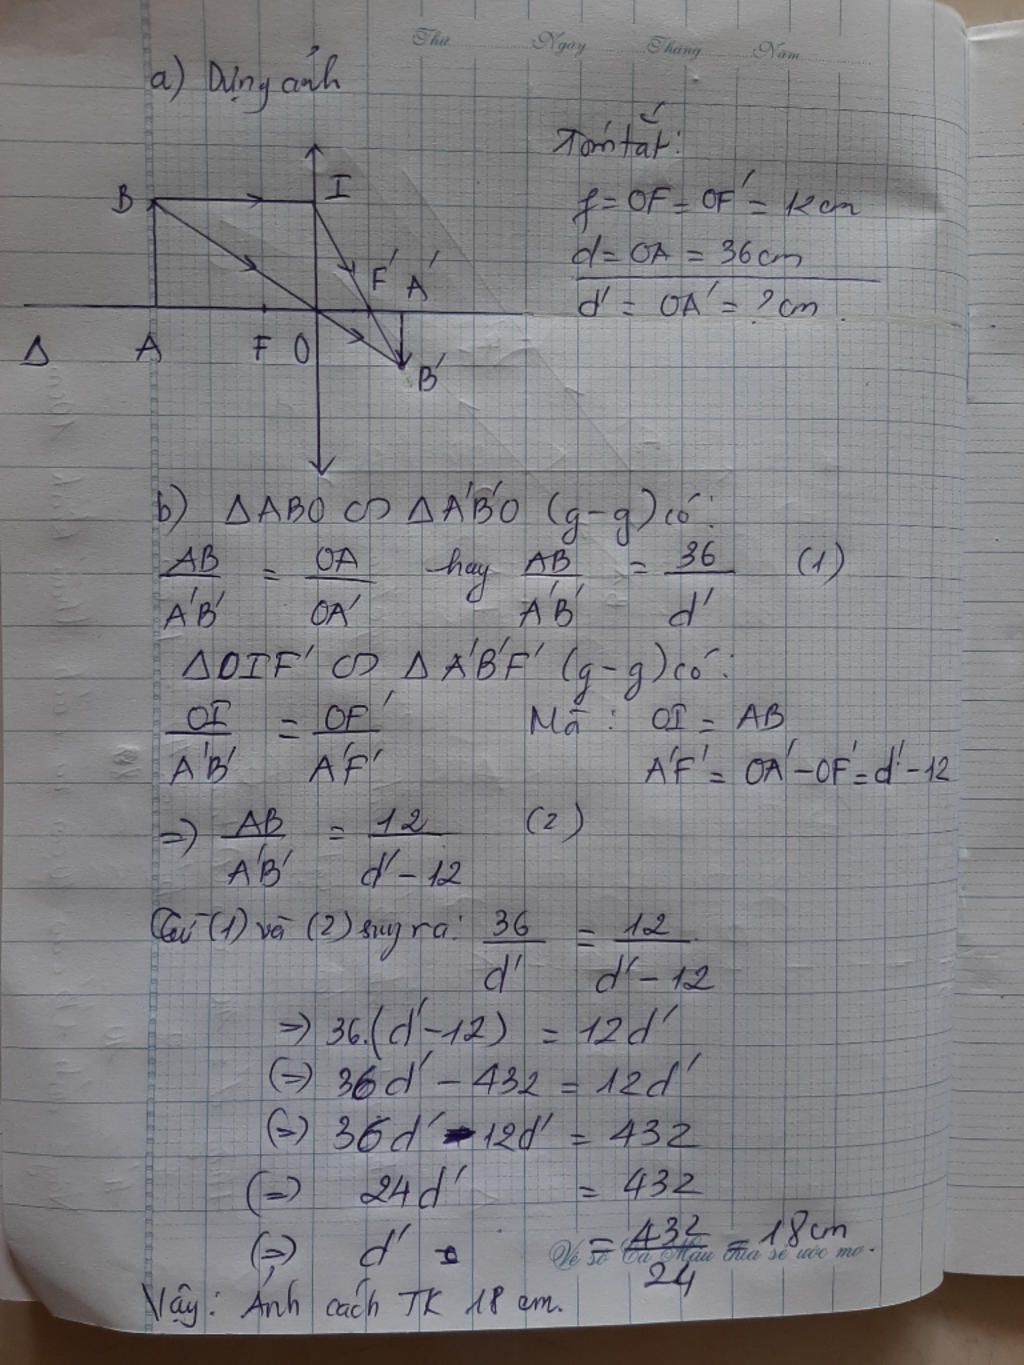 Thứ Ngày Tháng Năm
a) Dựng ảnh
Tóm tắt:
f = OF = OF' = 12cm
d = OA = 36cm
d' = OA' = ? cm
B I
F' A'
Δ A F O
B'
b) ΔABO ∽ ΔA'B'O (g-g) có:
AB/A'B' = OA/OA' hay AB/A'B' = 36/d' (1)
ΔOIF' ∽ ΔA'B'F' (g-g) có:
OI/A'B' = OF'/A'F' Mà: OI = AB
A'F' = OA' - OF' = d' - 12
=> AB/A'B' = 12/d' - 12 (2)
Từ (1) và (2) suy ra: 36/d' = 12/d' - 12
=> 36.(d' - 12) = 12d'
(=) 36d' - 432 = 12d'
(=) 36d' - 12d' = 432
(=) 24d' = 432
(=) d' = 432/24 = 18cm
Vở số Cà Mau chia sẻ ước mơ.
Vậy: Ảnh cách TK 18 cm.